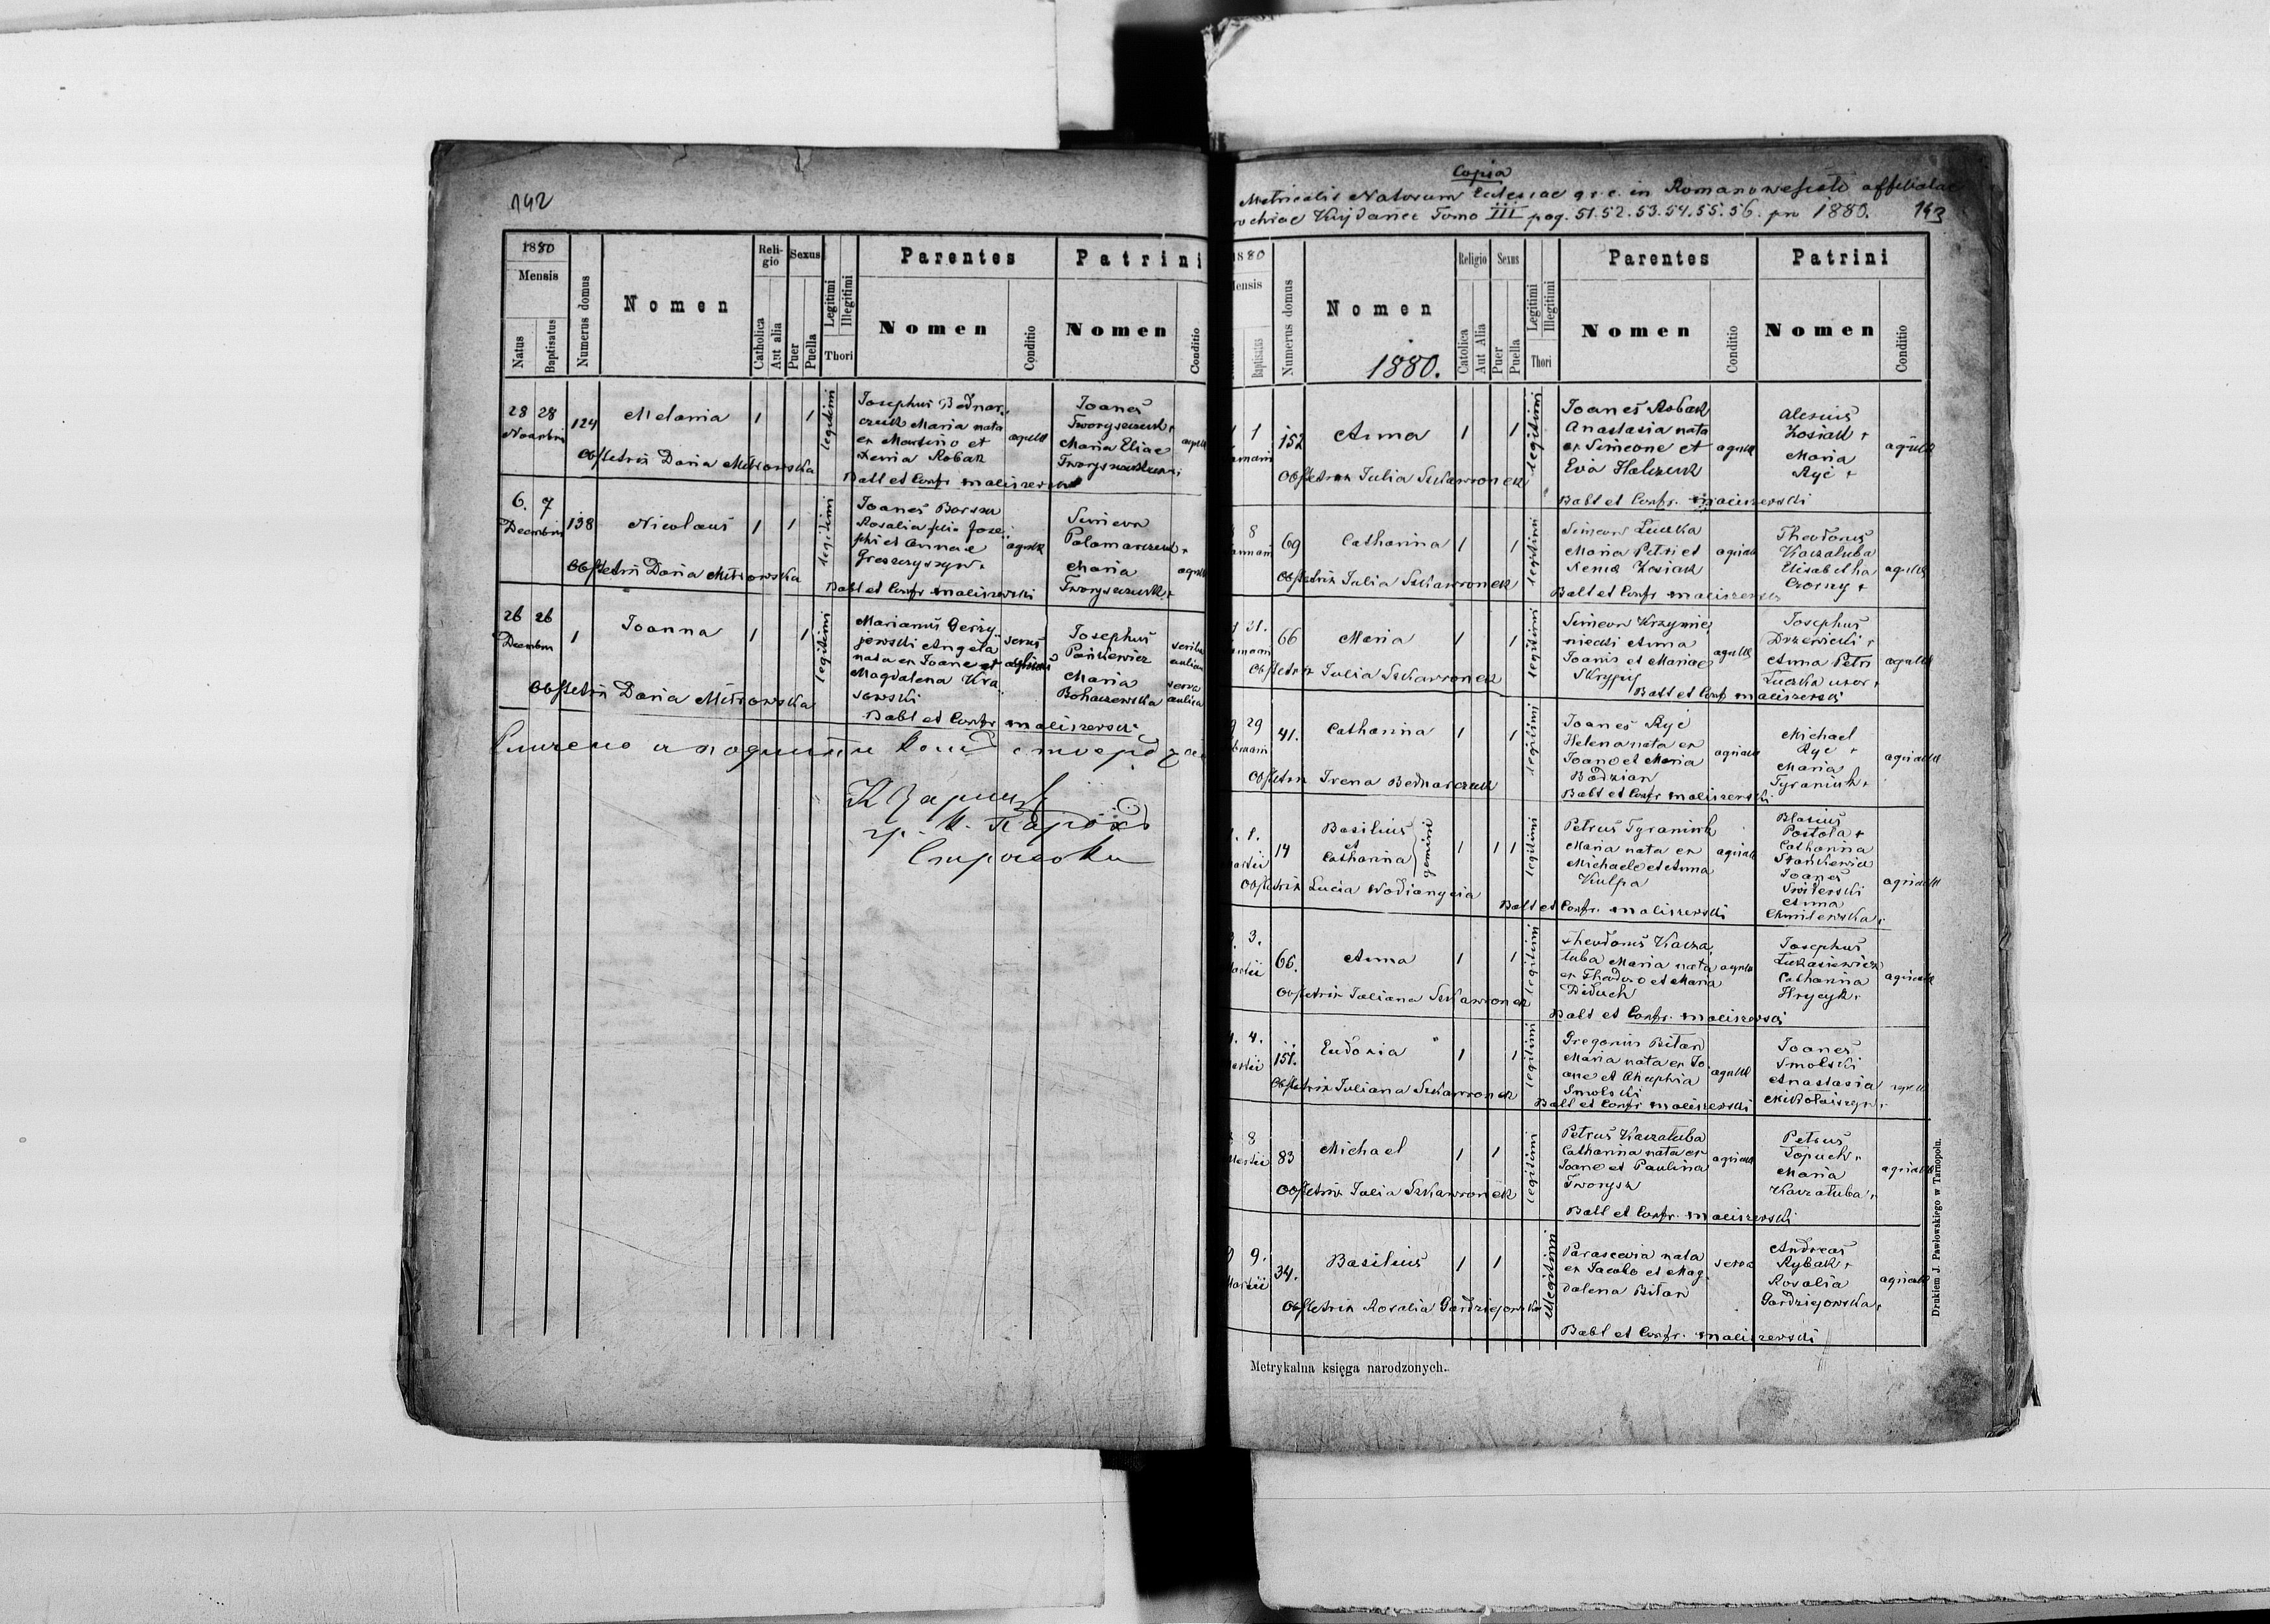 142
1880
Mensis
Natus
Baptisatus
Numerus domus
Nomen
Religio
Catholica
Aut alia
Sexus
Puer
Puella
Legitimi
Illegitimi
Thori
Parentes
Nomen
Conditio
Patrini
Nomen
Conditio
28 28
124
Melania
1
1
legitimi
Josephus Bednar
czuk Maria nata
ex Martino et
Xenia Robak
Joanes
Tworyszczuk +
Maria Eliae
Obstetrix Daria Mitrowska
Babt et Confr Maliszewski
6. 7
Decembris
138
Nicolaus
1
1
legitimi
Joanes Borszu
Rosalia filia Jose
phi et Annae
Greszczyszyn
Simeon
Palamarczuk +
Maria
Tworyszczuk +
Obstetrix Daria Mitrowska
Babt et Confr Maliszewski
26 26
Decembris
1
Joanna
1
1
legitimi
Marianus Gerzy
jewski Angela
nata ex Joane et
Magdalena Kra
sowski
servus
Josephus
Pankiewicz
Maria
Bohaczewska
scriba
aulicus
serva
aulica
Obstetrix Daria Mitrowska
Babt et Confr Maliszewski
Copia
Metricalis Natorum Ecclesiae g.r.c. in Romanowesioło affiliatae
ochiae Kujdance Tomo III pag. 51. 52. 53. 54. 55. 56. pro 1880.
143
1880
Mensis
Baptisatus
Numerus domus
Nomen
1880.
Religio
Catolica
Aut Alia
Sexus
Puer
Puella
Legitimi
Illegitimi
Thori
Parentes
Nomen
Conditio
Patrini
Nomen
Conditio
1
152
Anna
1
1
legitimi
Joanes Robak
Anastasia nata
ex Simeone et
Eva Halczuk
agricola
Alexius
Kosiak +
Maria
Ryć +
Obstetrix Julia Szkawronek
Babt et Confr. Maliszewski
8
69
Catharina
1
1
legitimi
Simeon Łuczka
Maria Petri et
Xenia Kosiak
agricola
Theodorus
Kaczałuba
Elisabetha
Czorny +
Obstetrix Julia Szkawronek
Babt et Confr Maliszewski
21.
66
Maria
1
1
legitimi
Simeon Krzymie
niecki Anna
Joanis et Mariae
Skrypij
Josephus
Drzewiecki +
Anna Petri
Łuczka uxor +
Obstetrix Julia Szkawronek
Babt et Confr Maliszewski
29
41.
Catharina
1
1
legitimi
Joanes Ryć
Helena nata ex
Joane et Maria
Bodzian
agricola
Michael
Ryć +
Maria
Tyraniuk +
Obstetrix Irena Bednarczuk
Babt et Confr Maliszewski
1. 1.
Martii
14
Basilius
et
Catharina
gemini
1
1 1
legitimi
Petrus Tyraniuk
Maria nata ex
Michaele et Anna
Kulpa
agricola
Blasius
Postoła +
Catharina
Stankiewicz
Joanes
Switerski
Anna
Chmilewska +
Obstetrix Lucia Wodianycia
Babt et Confr. Maliszewski
3.
Martii
66.
Anna
1
1
legitimi
Theodorus Kacza
łuba Maria nata
ex Theodoro et Maria
Diduch
Josephus
Łukasiewicz
Catharina
Hrycyk +
Obstetrix Juliana Szkawronek
Babt et Confr. Maliszewski
4. 4.
Martii
151.
Eudoxia
1
1
legitimi
Gregorius Bitan
Maria nata ex Jo
ane et Ahaphia
Smolski
Joanes
Smolski
Anastasia
Mikołaiszyn +
Obstetrix Juliana Szkawronek
Babt et Confr Maliszewski
8
Martii
83
Michael
1
1
legitimi
Petrus Kaczałuba
Catharina nata ex
Joane et Paulina
Tworysz
agricola
Petrus
Łopuch +
Maria
Kaczałuba +
Obstetrix Julia Szkawronek
Babt et Confr. Maliszewski
9.
Martii
34.
Basilius
1
1
illegitimi
Parascevia nata
ex Jacobo et Mag
dalena Bitan
serva
Andreas
Rybak +
Rosalia
Gardziejowska +
agricola
Obstetrix Rosalia Gardziejowska
Babt et Confr. Maliszewski
Metrykalna księga narodzonych.
Drukiem J. Pawłowskiego w Tarnopolu.